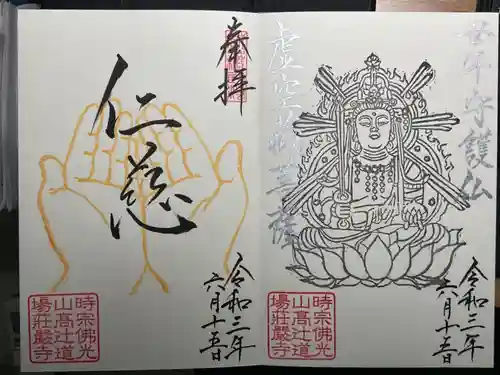 丑年守護仏
虚空蔵菩薩
令和三年
六月十五日
時宗佛光
山髙辻道
場莊嚴寺
奉拝
仁慈
令和三年
六月十五日
時宗佛光
山髙辻道
場莊嚴寺